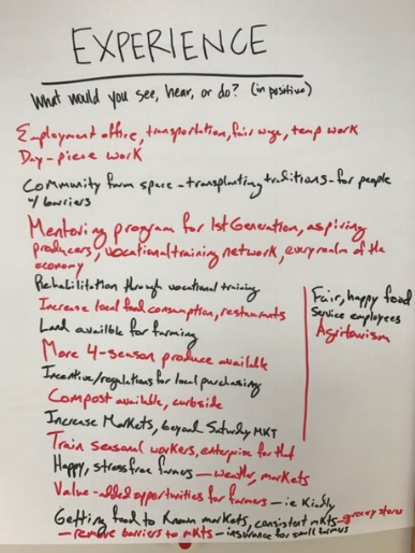 EXPERIENCE
What would you see, hear, or do? (in positive)
Employment office, transportation, fair wage, temp work
Day-piece work
Community farm space - transplanting traditions - for people
w/ barriers
Mentoring program for 1st Generation, aspiring
producers, vocational training network, every realm of the
economy
Rehabilitation through vocational training
Increase local food consumption, restaurants
Land availble for farming
More 4-season produce available
Incentive/regulations for local purchasing
Compost available, curbside
Increase Markets, beyond Saturday MKT
Train seasonal workers, enterprise for that
Happy, stress free farmers - weather, markets
Value-added opportunities for farmers - ie
Getting food to known markets, consistent mkts - grocery stores
- remove barriers to mkts - insurance for small farmers
Fair, happy food
service employees
Agritourism